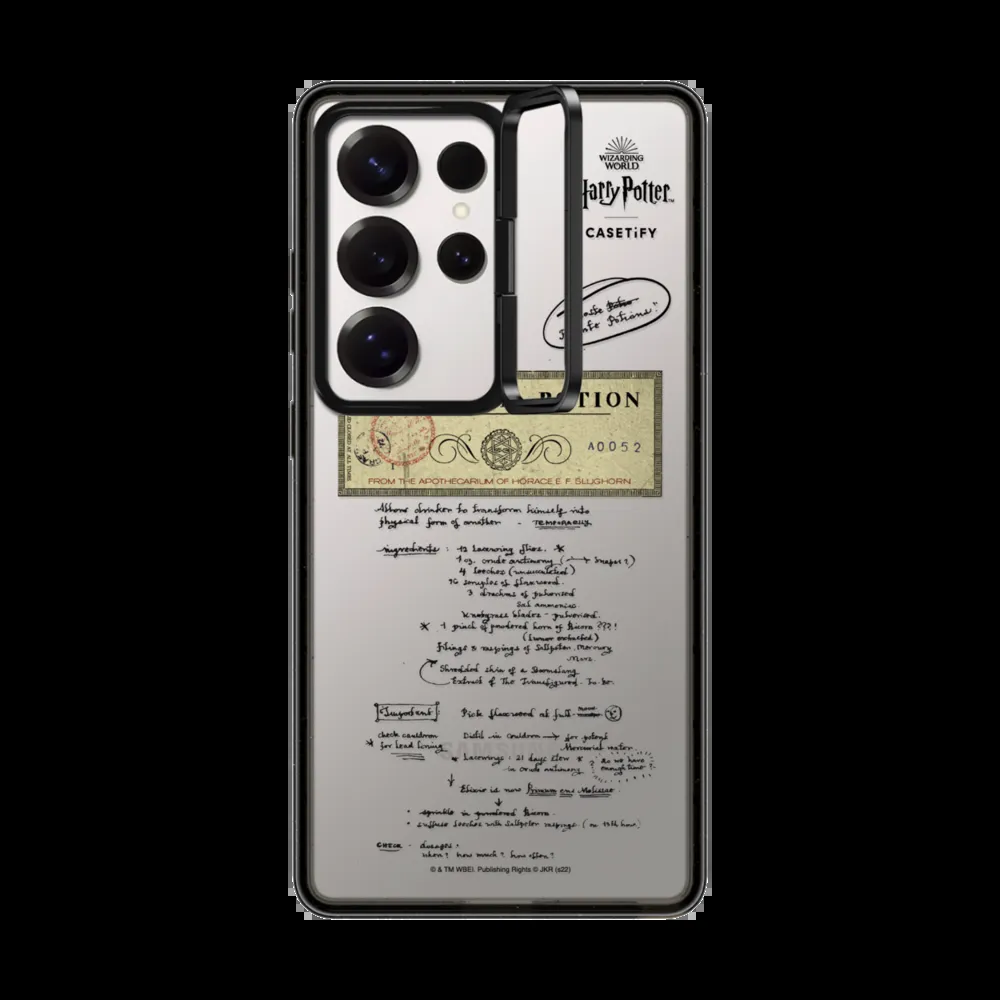 WIZARDING
WORLD
Harry Potter
CASETiFY
Potions?
POTION
A0052
CLOSED AT ALL TIMES
FROM THE APOTHECARIUM OF HORACE E. F. SLUGHORN
Allows drinker to transform himself into
physical form of another - TEMPORARILY
ingredients : 12 lacewing flies. *
1 oz. crude antimony → Snapes?)
4 leeches (unsucculated)
16 scruples of fluxweed.
3 drachms of pulverised
Sal ammoniac
Knotgrass blades - pulverised.
* 1 pinch of powdered horn of Bicorn ???!
(Lunar extracted)
Filings & raspings of Saltpeter, Mercury
Mars.
Shredded skin of a Boomslang
Extract of The Transfigured. To. be.
"Important": Pick fluxweed at full moon
check cauldron
* for lead lining
Distil in Cauldron → for potent
Mercurial water
SAMSUNG
Lacewings : 21 days stew *
in crude antimony
? do we have
enough time?
Elixir is now
sprinkle in powdered Bicorn.
suffuse leeches with Saltpeter raspings (on 13th hour)
CHECK - dosages.
when? how much? how often?
© & TM WBEI. Publishing Rights © JKR (s22)